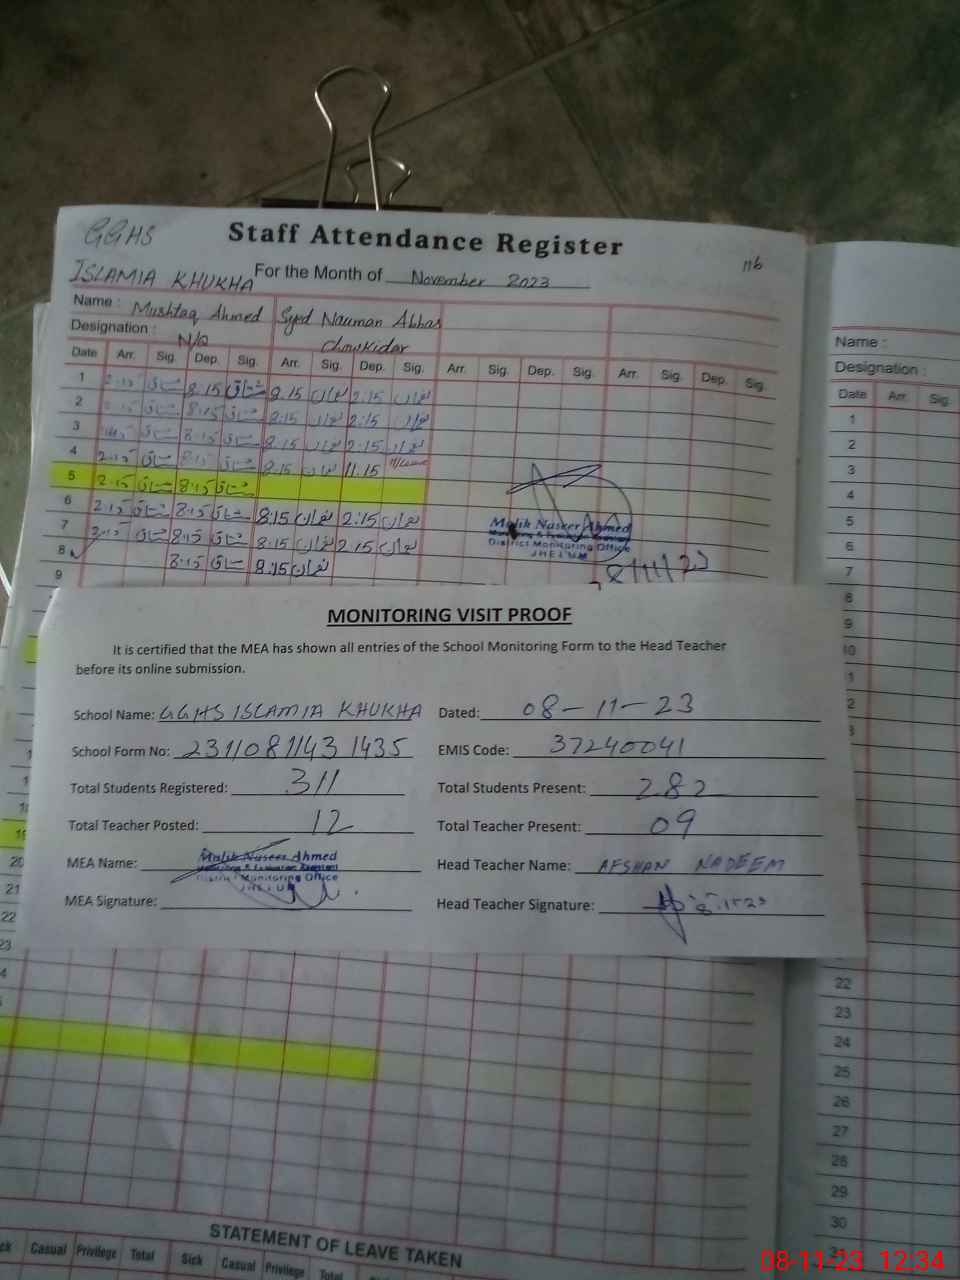 GGHS Staff Attendance Register
116
ISLAMIA KHUKHA For the Month of November 2023
Name : Mushtaq Ahmed Syed Nauman Abbas
Designation : N/Q Chowkidar
Date Arr. Sig. Dep. Sig. Arr. Sig. Dep. Sig. Arr. Sig. Dep. Sig. Arr. Sig. Dep. Sig.
1 2:15 مشتاق 8:15 مشتاق 8:15 نعمان 2:15 نعمان
2 2:15 مشتاق 8:15 مشتاق 8:15 نعمان 2:15 نعمان
3 مشتاق 8:15 مشتاق 8:15 نعمان 2:15 نعمان
4 2:15 مشتاق 8:15 مشتاق 8:15 نعمان 11:15
5 2:15 مشتاق 8:15 مشتاق
6 2:15 مشتاق 8:15 مشتاق 8:15 نعمان 2:15 نعمان
7 2:15 مشتاق 8:15 مشتاق 8:15 نعمان 2:15 نعمان
8 8:15 مشتاق 8:15 نعمان
9
Malik Naseer Ahmed
District Monitoring Office
JHELUM
8/11/23
MONITORING VISIT PROOF
It is certified that the MEA has shown all entries of the School Monitoring Form to the Head Teacher
before its online submission.
School Name: GGHS ISLAMIA KHUKHA Dated: 08-11-23
School Form No: 2311081143 1435 EMIS Code: 37240041
Total Students Registered: 311 Total Students Present: 282
Total Teacher Posted: 12 Total Teacher Present: 09
MEA Name: Malik Naseer Ahmed Head Teacher Name: AFSHAN NADEEM
District Monitoring Office
JHELUM
MEA Signature: Head Teacher Signature:
20
21
22
23
STATEMENT OF LEAVE TAKEN
Casual Privilege Total Sick Casual Privilege Total
Name :
Designation :
Date Arr. Sig
1
2
3
4
5
6
7
8
9
10
22
23
24
25
26
27
28
29
30
08-11-23 12:34